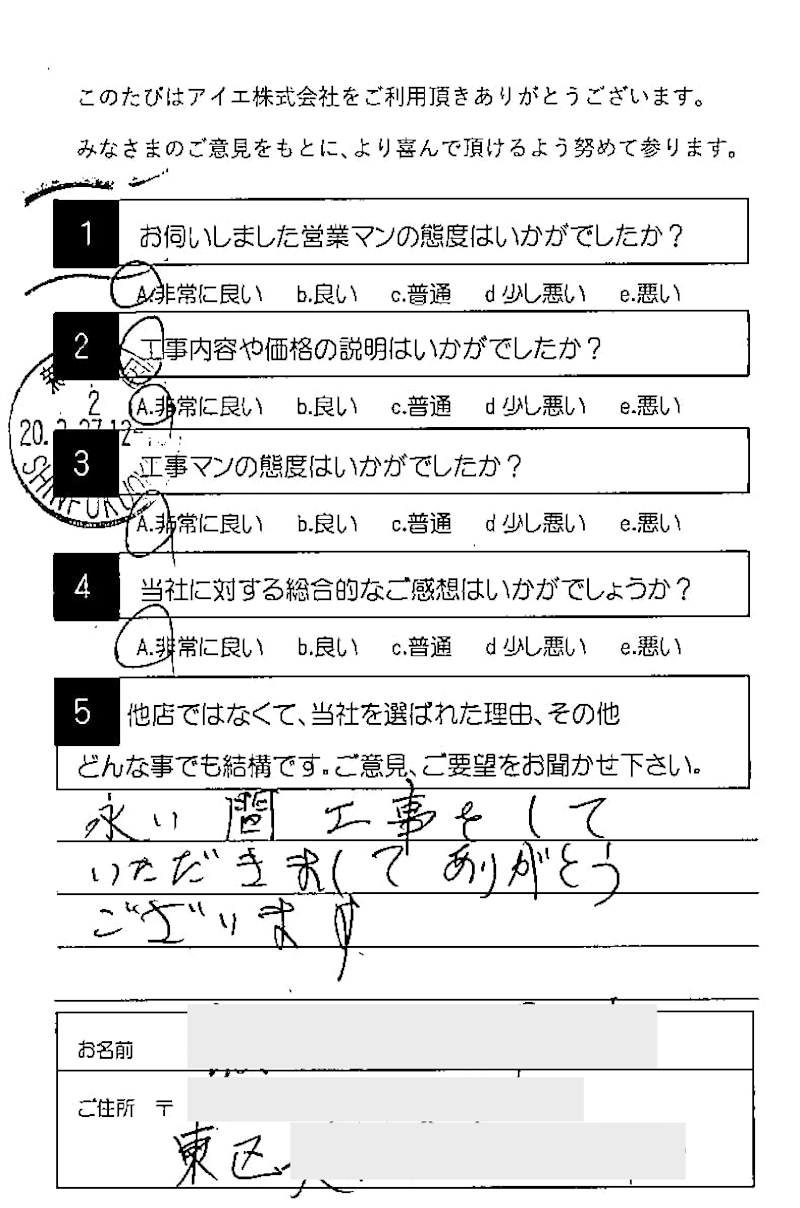 このたびはアイエ株式会社をご利用頂きありがとうございます。
みなさまのご意見をもとに、より喜んで頂けるよう努めて参ります。
1 お伺いしました営業マンの態度はいかがでしたか？
A.非常に良い b.良い c.普通 d少し悪い e.悪い
2 工事内容や価格の説明はいかがでしたか？
A.非常に良い b.良い c.普通 d少し悪い e.悪い
3 工事マンの態度はいかがでしたか？
A.非常に良い b.良い c.普通 d少し悪い e.悪い
4 当社に対する総合的なご感想はいかがでしょうか？
A.非常に良い b.良い c.普通 d少し悪い e.悪い
5 他店ではなくて、当社を選ばれた理由、その他
どんな事でも結構です。ご意見、ご要望をお聞かせ下さい。
永い間 工事をして
いただきましてありがとう
ございます
お名前
ご住所 〒
東区